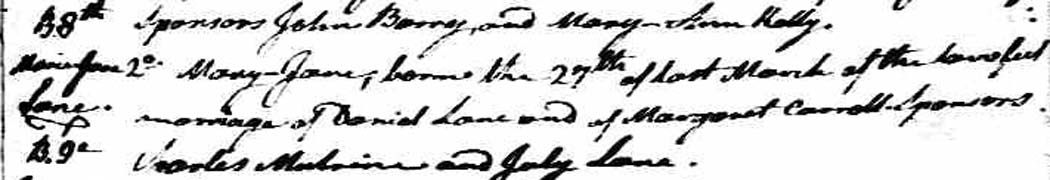 B8th Sponsors John Barry, and Mary-Ann Kelly.
Marie Jane 2o. Mary-Jane, borne the 27th of last March of the lawful
Lane. marriage of Daniel Lane and of Margaret Carroll. Sponsors
B.9e Charles and July Lane.